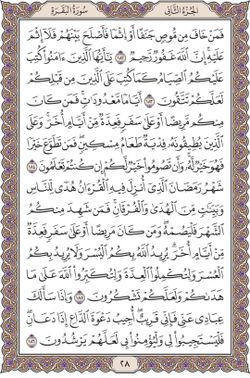 الجزء الثاني
سورة البقرة
فمن خاف من موص جنفا أو إثما فأصلح بينهم فلا إثم
عليه إن الله غفور رحيم ١٨٢ يا أيها الذين ءامنوا كتب
عليكم الصيام كما كتب على الذين من قبلكم
لعلكم تتقون ١٨٣ أياما معدودات فمن كان
منكم مريضا أو على سفر فعدة من أيام أخر وعلى
الذين يطيقونه فدية طعام مسكين فمن تطوع خيرا
فهو خير له وأن تصوموا خير لكم إن كنتم تعلمون ١٨٤
شهر رمضان الذي أنزل فيه القرءان هدى للناس
وبينات من الهدى والفرقان فمن شهد منكم
الشهر فليصمه ومن كان مريضا أو على سفر فعدة
من أيام أخر يريد الله بكم اليسر ولا يريد بكم
العسر ولتكملوا العدة ولتكبروا الله على ما
هداكم ولعلكم تشكرون ١٨٥ وإذا سألك
عبادي عني فإني قريب أجيب دعوة الداع إذا دعان
فليستجيبوا لي وليؤمنوا بي لعلهم يرشدون ١٨٦
٢٨